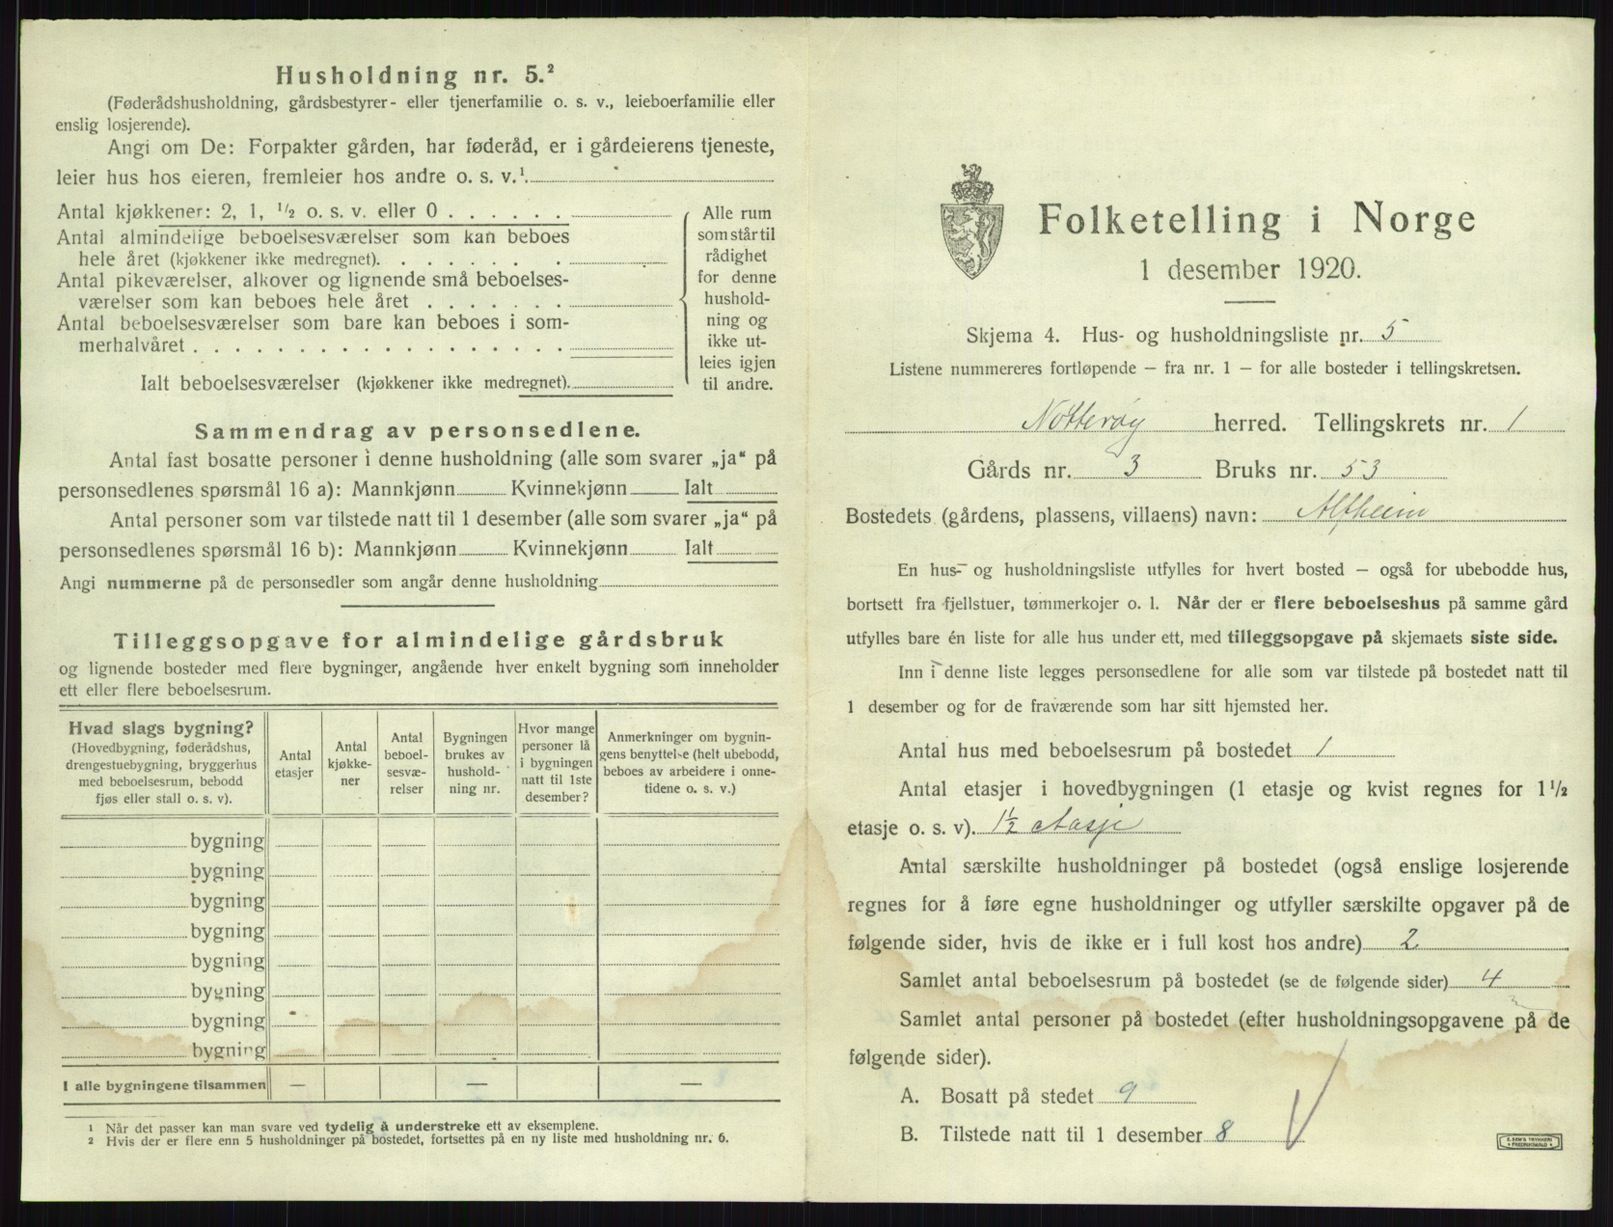 Husholdning nr. 5.²
(Føderådshusholdning, gårdsbestyrer- eller tjenerfamilie o. s. v., leieboerfamilie eller
enslig losjerende).
Angi om De: Forpakter gården, har føderåd, er i gårdeierens tjeneste,
leier hus hos eieren, fremleier hos andre o. s. v.¹.
Antal kjøkkener: 2, 1, ½ o. s. v. eller 0 . . . . . .
Antal almindelige beboelsesværelser som kan beboes
hele året (kjøkkener ikke medregnet). . . . . . . .
Antal pikeværelser, alkover og lignende små beboelses-
værelser som kan beboes hele året . . . . . . .
Antal beboelsesværelser som bare kan beboes i som-
merhalvåret . . . . . . . . . . . . . . . . . .
Ialt beboelsesværelser (kjøkkener ikke medregnet).
Alle rum
som står til
rådighet
for denne
hushold-
ning og
ikke ut-
leies igjen
til andre.
Sammendrag av personsedlene.
Antal fast bosatte personer i denne husholdning (alle som svarer „ja“ på
personsedlenes spørsmål 16 a): Mannkjønn Kvinnekjønn Ialt
Antal personer som var tilstede natt til 1 desember (alle som svarer „ja“ på
personsedlenes spørsmål 16 b): Mannkjønn Kvinnekjønn Ialt
Angi nummerne på de personsedler som angår denne husholdning
Tilleggsopgave for almindelige gårdsbruk
og lignende bosteder med flere bygninger, angående hver enkelt bygning som inneholder
ett eller flere beboelsesrum.
Hvad slags bygning?
(Hovedbygning, føderådshus,
drengestuebygning, bryggerhus
med beboelsesrum, bebodd
fjøs eller stall o. s. v).
Antal
etasjer
Antal
kjøkke-
ner
Antal
beboel-
sesvæ-
relser
Bygningen
brukes av
hushold-
ning nr.
Hvor mange
personer lå
i bygningen
natt til 1ste
desember?
Anmerkninger om bygnin-
gens benyttelse (helt ubebodd,
beboes av arbeidere i onne-
tidene o. s. v.)
bygning
bygning
bygning
bygning
bygning
bygning
bygning
bygning
I alle bygningene tilsammen — — —
¹ Når det passer kan man svare ved tydelig å understreke ett av eksemplene.
² Hvis der er flere enn 5 husholdninger på bostedet, fortsettes på en ny liste med husholdning nr. 6.
Folketelling i Norge
1 desember 1920.
Skjema 4. Hus- og husholdningsliste nr. 5
Listene nummereres fortløpende – fra nr. 1 – for alle bosteder i tellingskretsen.
Nøtterøy herred. Tellingskrets nr. 1
Gårds nr. 3 Bruks nr. 53
Bostedets (gårdens, plassens, villaens) navn: Alfheim
En hus- og husholdningsliste utfylles for hvert bosted – også for ubebodde hus,
bortsett fra fjellstuer, tømmerkojer o. l. Når der er flere beboelseshus på samme gård
utfylles bare én liste for alle hus under ett, med tilleggsopgave på skjemaets siste side.
Inn i denne liste legges personsedlene for alle som var tilstede på bostedet natt til
1 desember og for de fraværende som har sitt hjemsted her.
Antal hus med beboelsesrum på bostedet 1
Antal etasjer i hovedbygningen (1 etasje og kvist regnes for 1½
etasje o. s. v). 1½ etasje
Antal særskilte husholdninger på bostedet (også enslige losjerende
regnes for å føre egne husholdninger og utfyller særskilte opgaver på de
følgende sider, hvis de ikke er i full kost hos andre) 2
Samlet antal beboelsesrum på bostedet (se de følgende sider) 4
Samlet antal personer på bostedet (efter husholdningsopgavene på de
følgende sider).
A. Bosatt på stedet 9
B. Tilstede natt til 1 desember 8